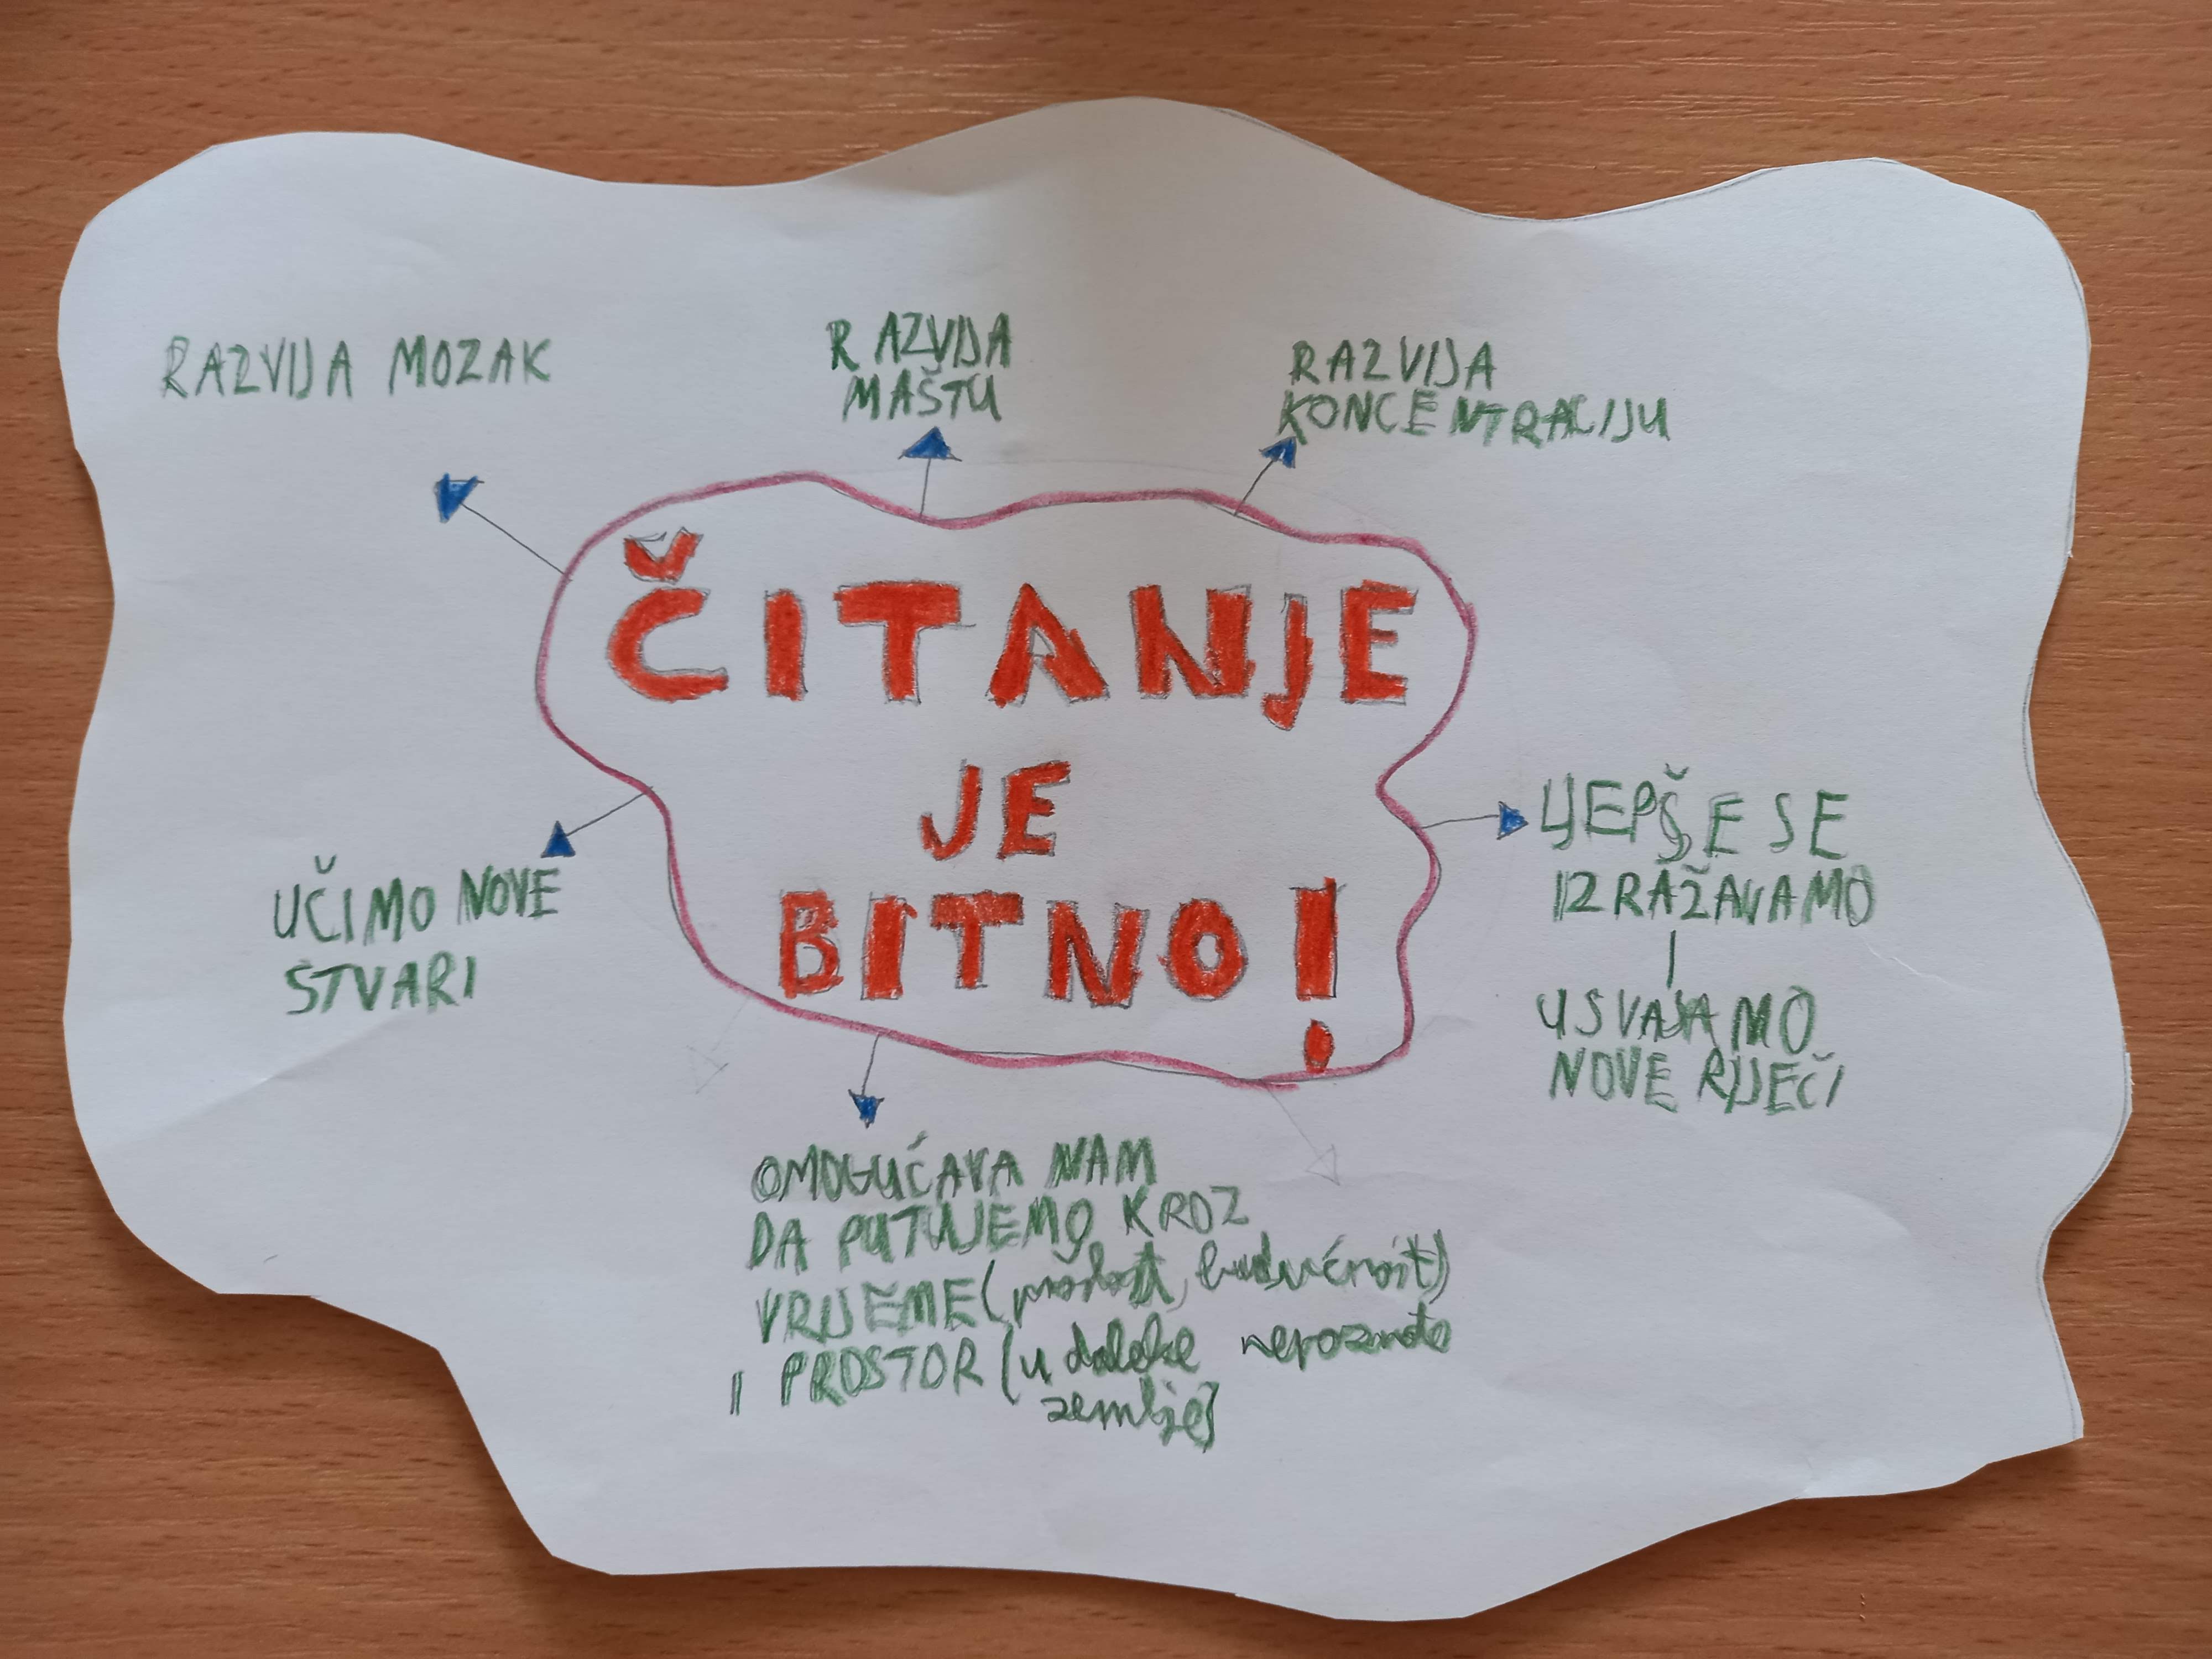 RAZVIJA MOZAK
RAZVIJA
MAŠTU
RAZVIJA
KONCENTRACIJU
ČITANJE
JE
BITNO!
LJEPŠE SE
IZRAŽAVAMO
USVAJAMO
NOVE RIJEČI
UČIMO NOVE
STVARI
OMOGUĆAVA NAM
DA PUTUJEMO KROZ
VRIJEME (prošlost, budućnost)
I PROSTOR (u daleke nepoznate
zemlje)